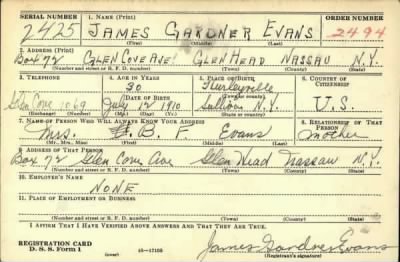 SERIAL NUMBER 1. NAME (Print) ORDER NUMBER
2425 JAMES GARDNER EVANS 2494
(First) (Middle) (Last)
2. ADDRESS (Print)
Box 72 GLEN COVE AVE. GLEN HEAD NASSAU N.Y.
(Number and street or R. F. D. number) (Town) (County) (State)
3. TELEPHONE 4. AGE IN YEARS 5. PLACE OF BIRTH 6. COUNTRY OF CITIZENSHIP
30 Hurleyville
Glen Cove 1069 DATE OF BIRTH (Town or county)
July 12 1910 Sullivan N.Y. U.S.
(Exchange) (Number) (Mo.) (Day) (Yr.) (State or country)
7. NAME OF PERSON WHO WILL ALWAYS KNOW YOUR ADDRESS 8. RELATIONSHIP OF THAT PERSON
Mrs. B. F. Evans mother
(Mr., Mrs., Miss) (First) (Middle) (Last)
9. ADDRESS OF THAT PERSON
Box 72 Glen Cove Ave Glen Head Nassau N.Y.
(Number and street or R. F. D. number) (Town) (County) (State)
10. EMPLOYER'S NAME
NONE
11. PLACE OF EMPLOYMENT OR BUSINESS
(Number and street or R. F. D. number) (Town) (County) (State)
I AFFIRM THAT I HAVE VERIFIED ABOVE ANSWERS AND THAT THEY ARE TRUE.
REGISTRATION CARD
D. S. S. Form 1 (over) 16—17105 James Gardner Evans
(Registrant's signature)